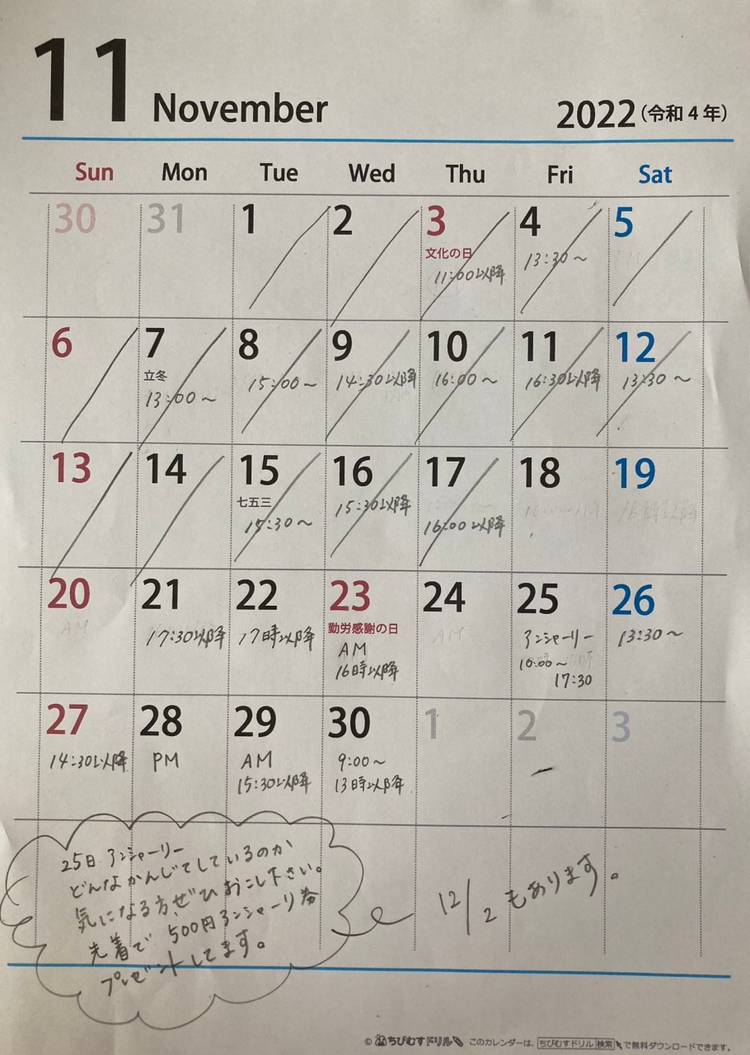 11 November 2022(令和4年)
Sun Mon Tue Wed Thu Fri Sat
30 31 1 2 3 4 5
文化の日
11:00以降 13:30〜
6 7 8 9 10 11 12
立冬
13:00〜 15:00〜 14:30以降 16:00〜 16:30以降 13:30〜
13 14 15 16 17 18 19
七五三
15:30〜 15:30以降 16:00以降
20 21 22 23 24 25 26
勤労感謝の日
AM 17:30以降 17時以降 AM AM アンシャーリー 13:30〜
16時以降 10:00〜
17:30
27 28 29 30 1 2 3
14:30以降 PM AM 9:00〜
15:30以降 13時以降
25日 アンシャーリー
どんなかんじでしているのか
気になる方、ぜひおこし下さい。
先着で 500円アンシャーリー券
プレゼントしてます。
12/2 もあります。
© ちびむすドリル このカレンダーは、ちびむすドリル 検索 で無料ダウンロードできます。